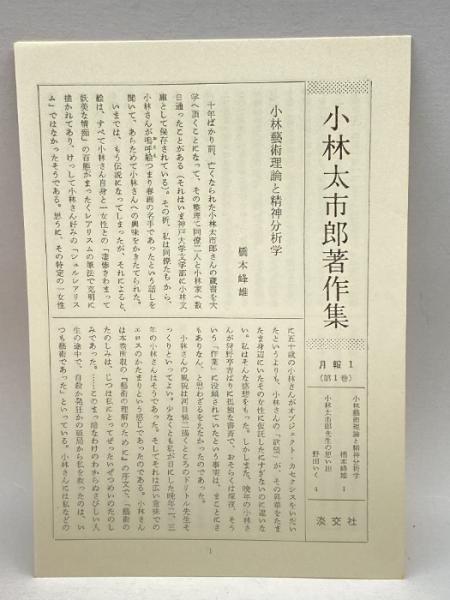 小林太市郎著作集
月報1
(第1巻)
小林藝術理論と精神分析学
橋本峰雄 1
小林太市郎先生の思い出
野田いく 4
淡交社
小林藝術理論と精神分析学
橋本峰雄
十年ばかり前、亡くなられた小林太市郎さんの蔵書を大
学へ頂くことになって、その整理で同僚二人と小林家へ数
日通ったことがある(それはいま神戸大学文学部に小林文
庫として保存されている)。その折、私は同僚たちから、
小林さんが嗚呼絵つまり春画の名手であったという話しを
聞いて、あらためて小林さんへの興味をかきたてられた。
いまでは、もう伝説になってしまったが、それによると、
絵は、すべて小林さん自身と一女性との「凄惨きわまって
妖美な情画」の百態がまったくレアリスムの筆法で克明に
描かれてあり、けっして小林さん好みの「シュルレアリス
ム」ではなかったそうである。思うに、その特定の一女性
に五十歳の小林さんがオブジェクト・カセクシスをいだい
たというよりも、小林さんの、「欲望」が、その昇華をたま
たま身辺にいたその女性に仮託したにすぎないのに違いな
い。私はそんな感想をもった。しかしまた、晩年の小林さ
んが狩野亭吉ばりに孤独な書斎で、おそらくは深夜、そう
いう「作業」に没頭されていたという事実は、まことにさ
もありなん、と思わざるをえなかったのであった。
小林さんの風貌は河目悌二描くところのドリトル先生そ
っくりといってよい。少なくとも私が目にした晩年の二、三
年の小林さんはそうであった。そしてそれは広い意味での
エロスのかたまりという感じであったのである。小林さん
は本巻所収の『藝術の理解のために』の序文で、「藝術の
たのしみは、じつは私にとってぜったいぜつめいのたのし
みであった。……このまっ暗なわけのわからぬさびしい人
生の途中で、自殺か発狂かの破局から私を救ったのは、い
つも藝術であった」といっている。小林さんには私などの
1